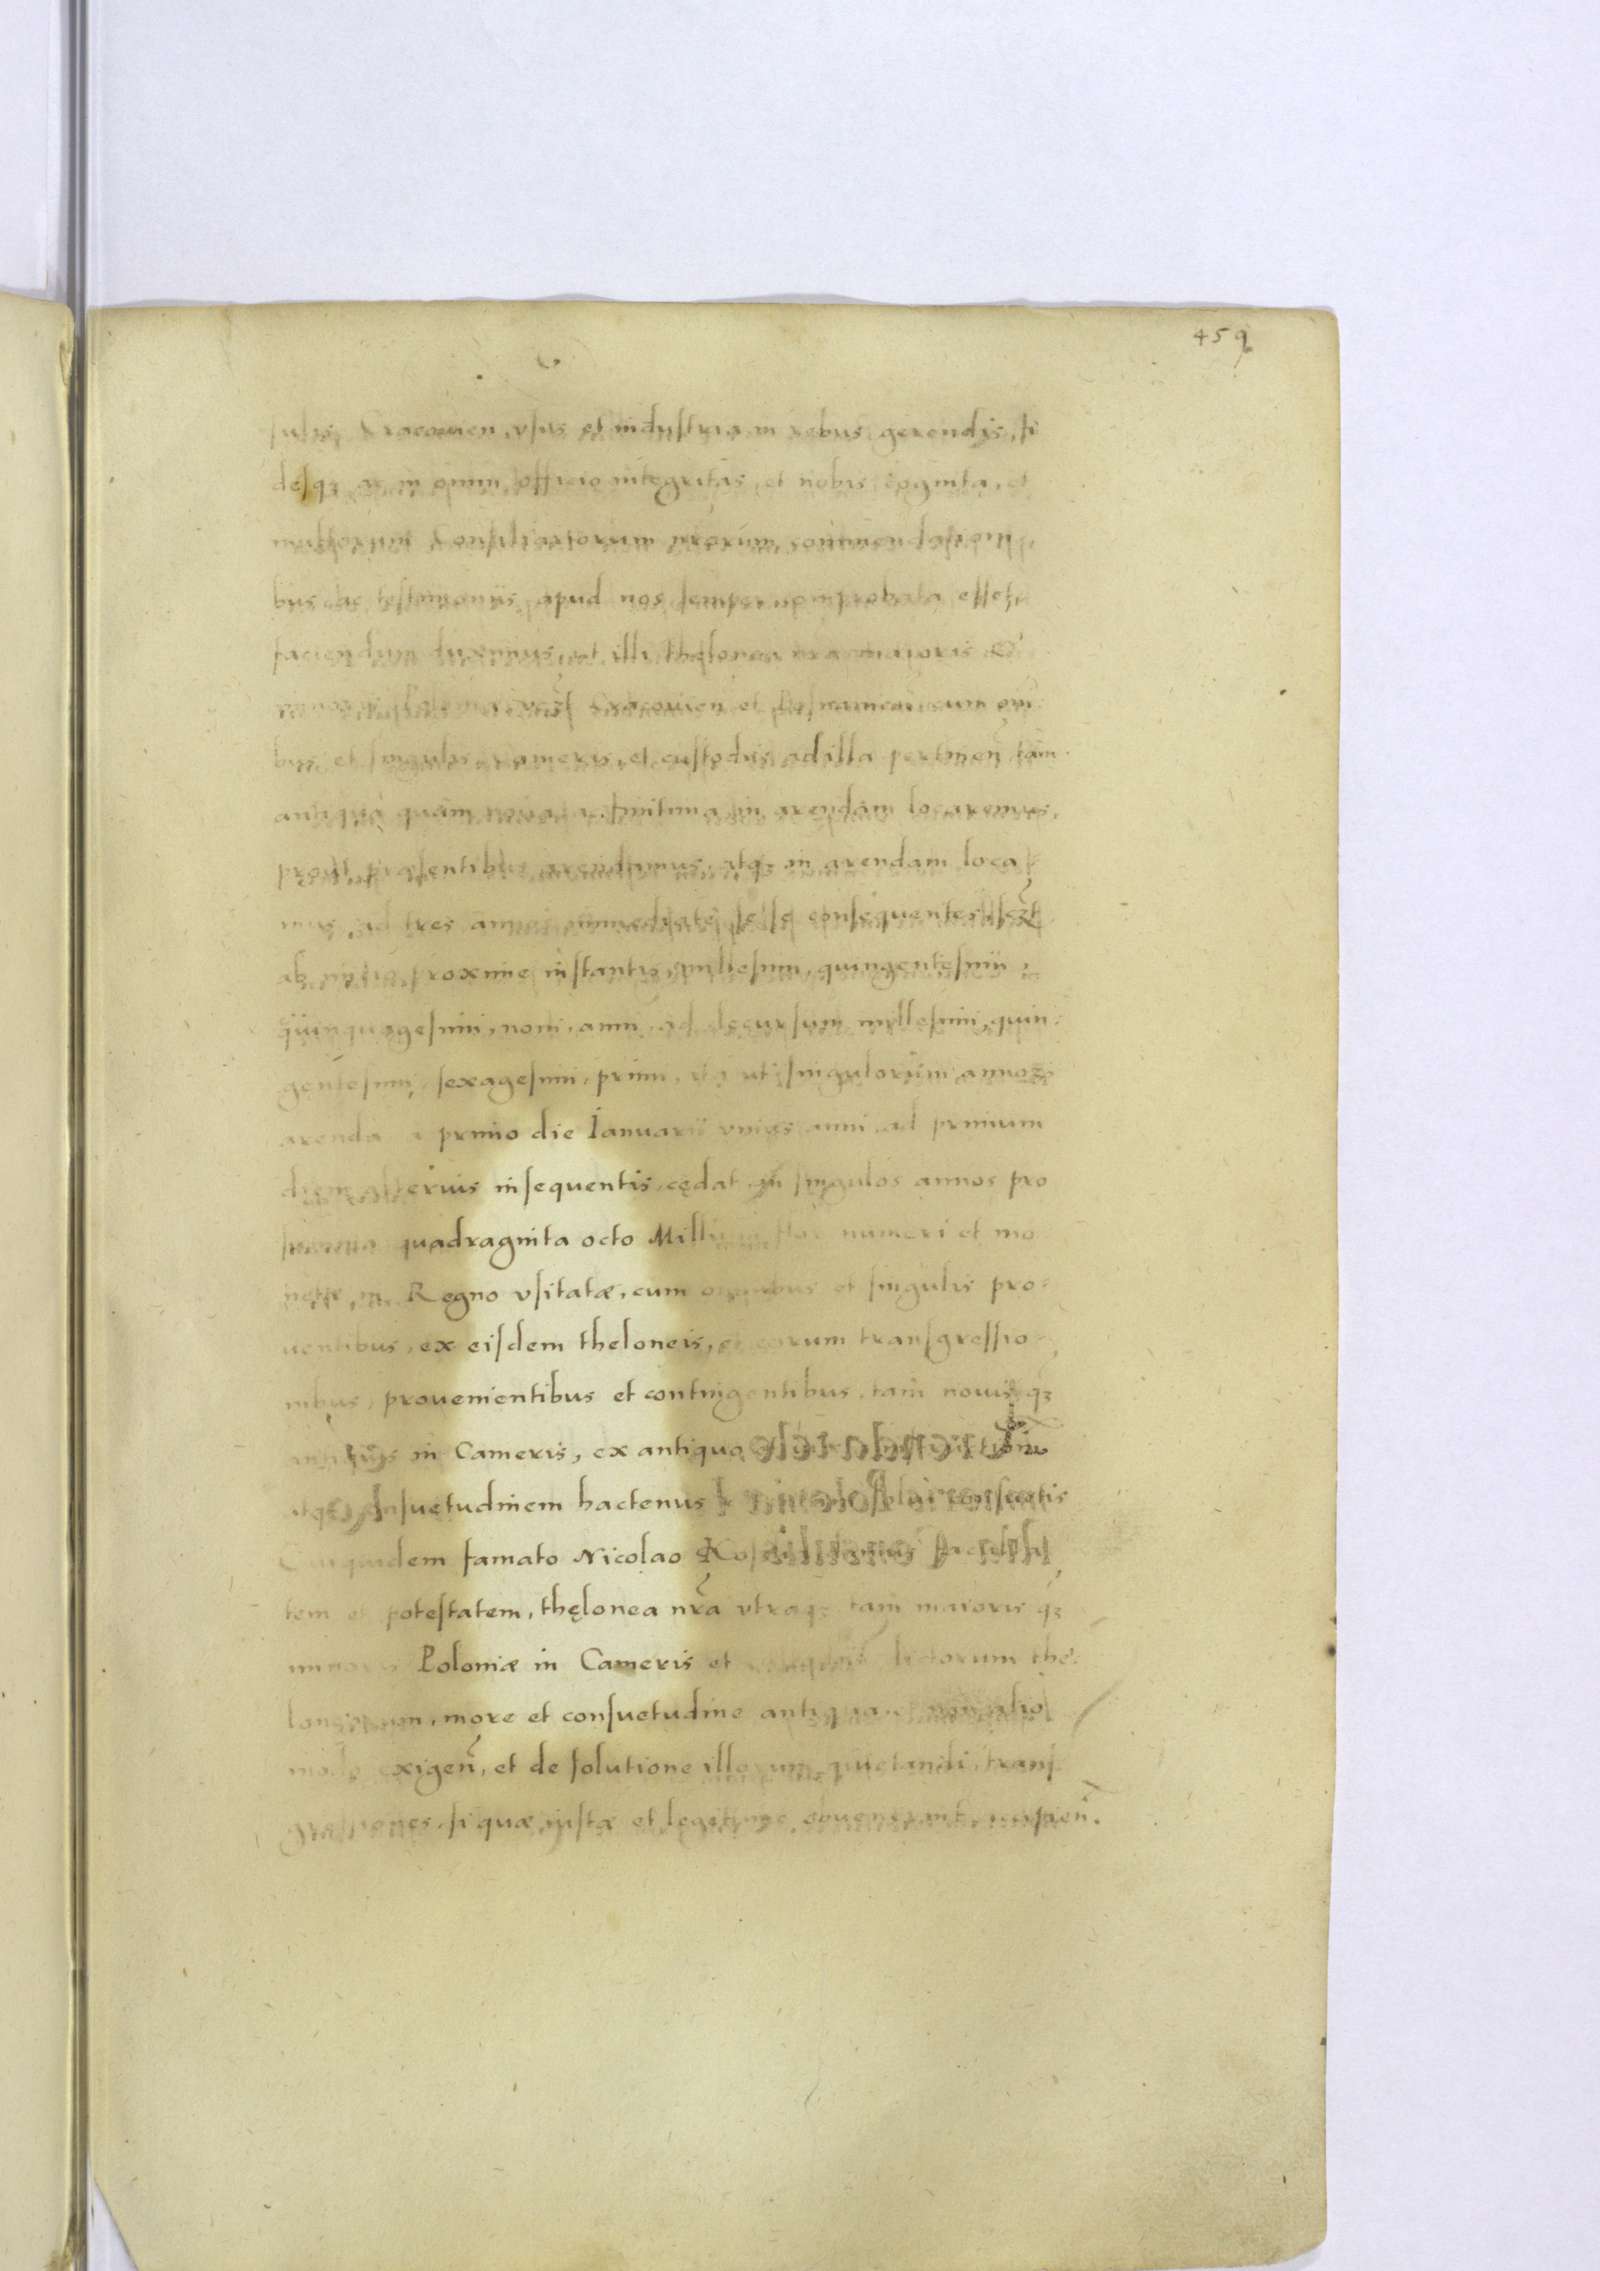 459
sulis Cracovien, vsus et industria in rebus gerendis, fi
desq; ac in omni officio integritas, et nobis cognita, et
multorum Consiliariorum nrorum commendationi
bus ac testimoniis apud nos semper comprobata esset,
faciendum duximus, vt illi thelonea nra maioris et
minoris Poloniae Cracovien et Posnanien cum omi
bus et singulis cameris, et custodiis ad illa pertinen tam
antiqua quam noua in arendam locaremus,
prout praesentibus arendamus, atq; in arendam loca
mus, ad tres annos immediate sese consequentes, sczt
ab initio proxime instantis, millesimi, quingentesimi,
quinquagesimi, noni, anni, ad decursum millesimi, quin
gentesimi, sexagesimi, primi, ita ut singulorum annoz
arenda a primo die Ianuarii vnius anni ad primum
diem alterius insequentis, cędat in singulos annos pro
summa quadraginta octo Millium flor numeri et mo
netæ in Regno vsitatæ, cum omnibus et singulis pro-
uentibus, ex eisdem theloneis, et eorum transgressio-
nibus, prouenientibus et contingentibus, tam nouis q;
antiquis in Cameris, ex antiquo
atq; consuetudinem hactenus solui consuetis
Cui quidem famato Nicolao faculta
tem et potestatem, thęlonea nra vtraq; tam maioris q;
minoris Poloniæ in Cameris et dictorum the-
loneorum, more et consuetudine antiqua, et non alio
modo exigen, et de solutione illorum quietandi, trans
gressiones si quæ iustæ et legitimæ obuenerint, recipien.